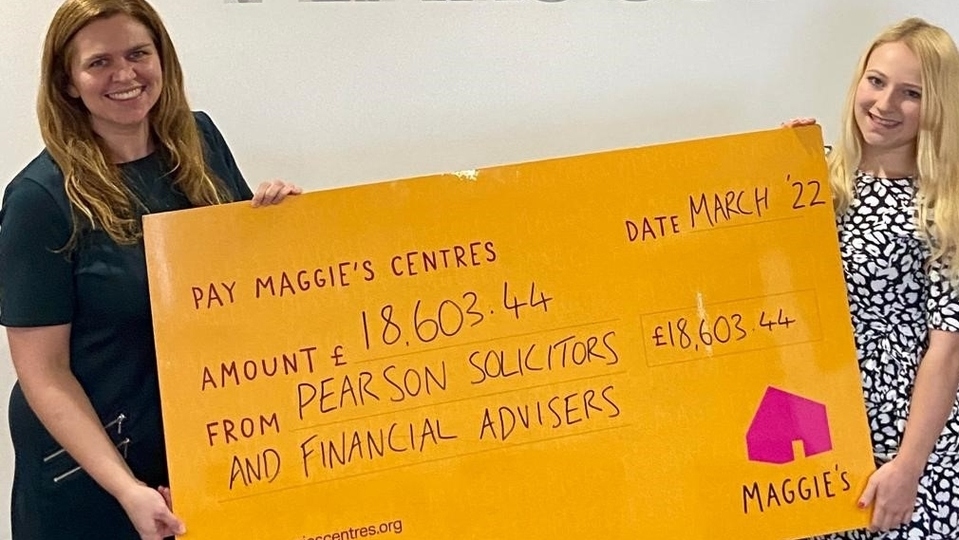 DATE MARCH '22
PAY MAGGIE'S CENTRES
AMOUNT £ 18,603.44
£18,603.44
FROM PEARSON SOLICITORS
AND FINANCIAL ADVISERS
MAGGIE'S